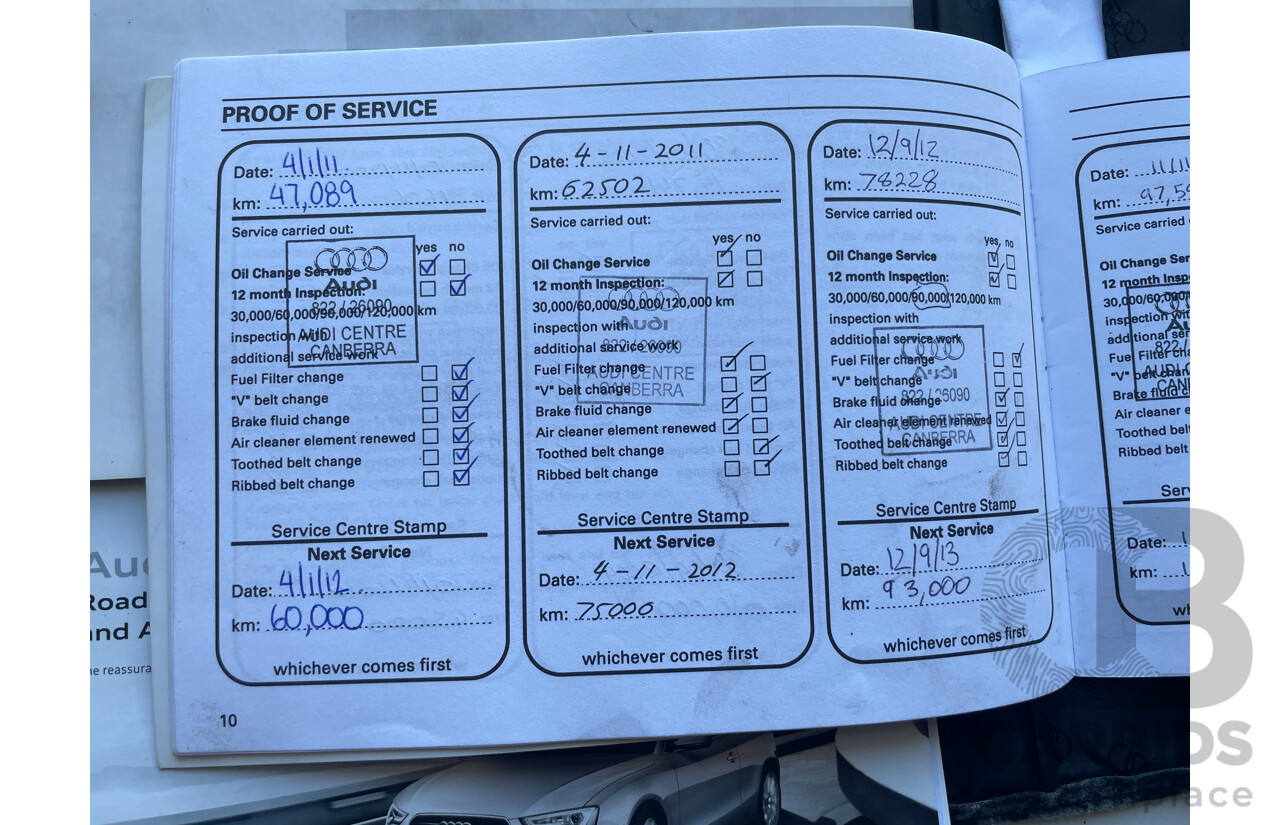 PROOF OF SERVICE
Date: 4/1/11
km: 47,089
Service carried out:
yes no
Oil Change Service
12 month Inspection:
30,000/60,000/90,000/120,000 km
inspection with
additional service work
Fuel Filter change
"V" belt change
Brake fluid change
Air cleaner element renewed
Toothed belt change
Ribbed belt change
Audi
822 / 26090
AUDI CENTRE
CANBERRA
Service Centre Stamp
Next Service
Date: 4/1/12
km: 60,000
whichever comes first
Date: 4-11-2011
km: 62502
Service carried out:
yes no
Oil Change Service
12 month Inspection:
30,000/60,000/90,000/120,000 km
inspection with
additional service work
Fuel Filter change
"V" belt change
Brake fluid change
Air cleaner element renewed
Toothed belt change
Ribbed belt change
Audi
822 / 26090
AUDI CENTRE
CANBERRA
Service Centre Stamp
Next Service
Date: 4-11-2012
km: 75000
whichever comes first
Date: 12/9/12
km: 78228
Service carried out:
yes no
Oil Change Service
12 month Inspection:
30,000/60,000/90,000/120,000 km
inspection with
additional service work
Fuel Filter change
"V" belt change
Brake fluid change
Air cleaner element renewed
Toothed belt change
Ribbed belt change
Audi
822 / 26090
AUDI CENTRE
CANBERRA
Service Centre Stamp
Next Service
Date: 12/9/13
km: 93,000
whichever comes first
10
Date:
km:
Service carried
Oil Change Ser
12 month Insp
30,000/60,000/90
inspection wit
additional ser
Fuel Filter cha
"V" belt chan
Brake fluid c
Air cleaner e
Toothed belt
Ribbed belt
Date:
km:
Road
and A
he reassura
place